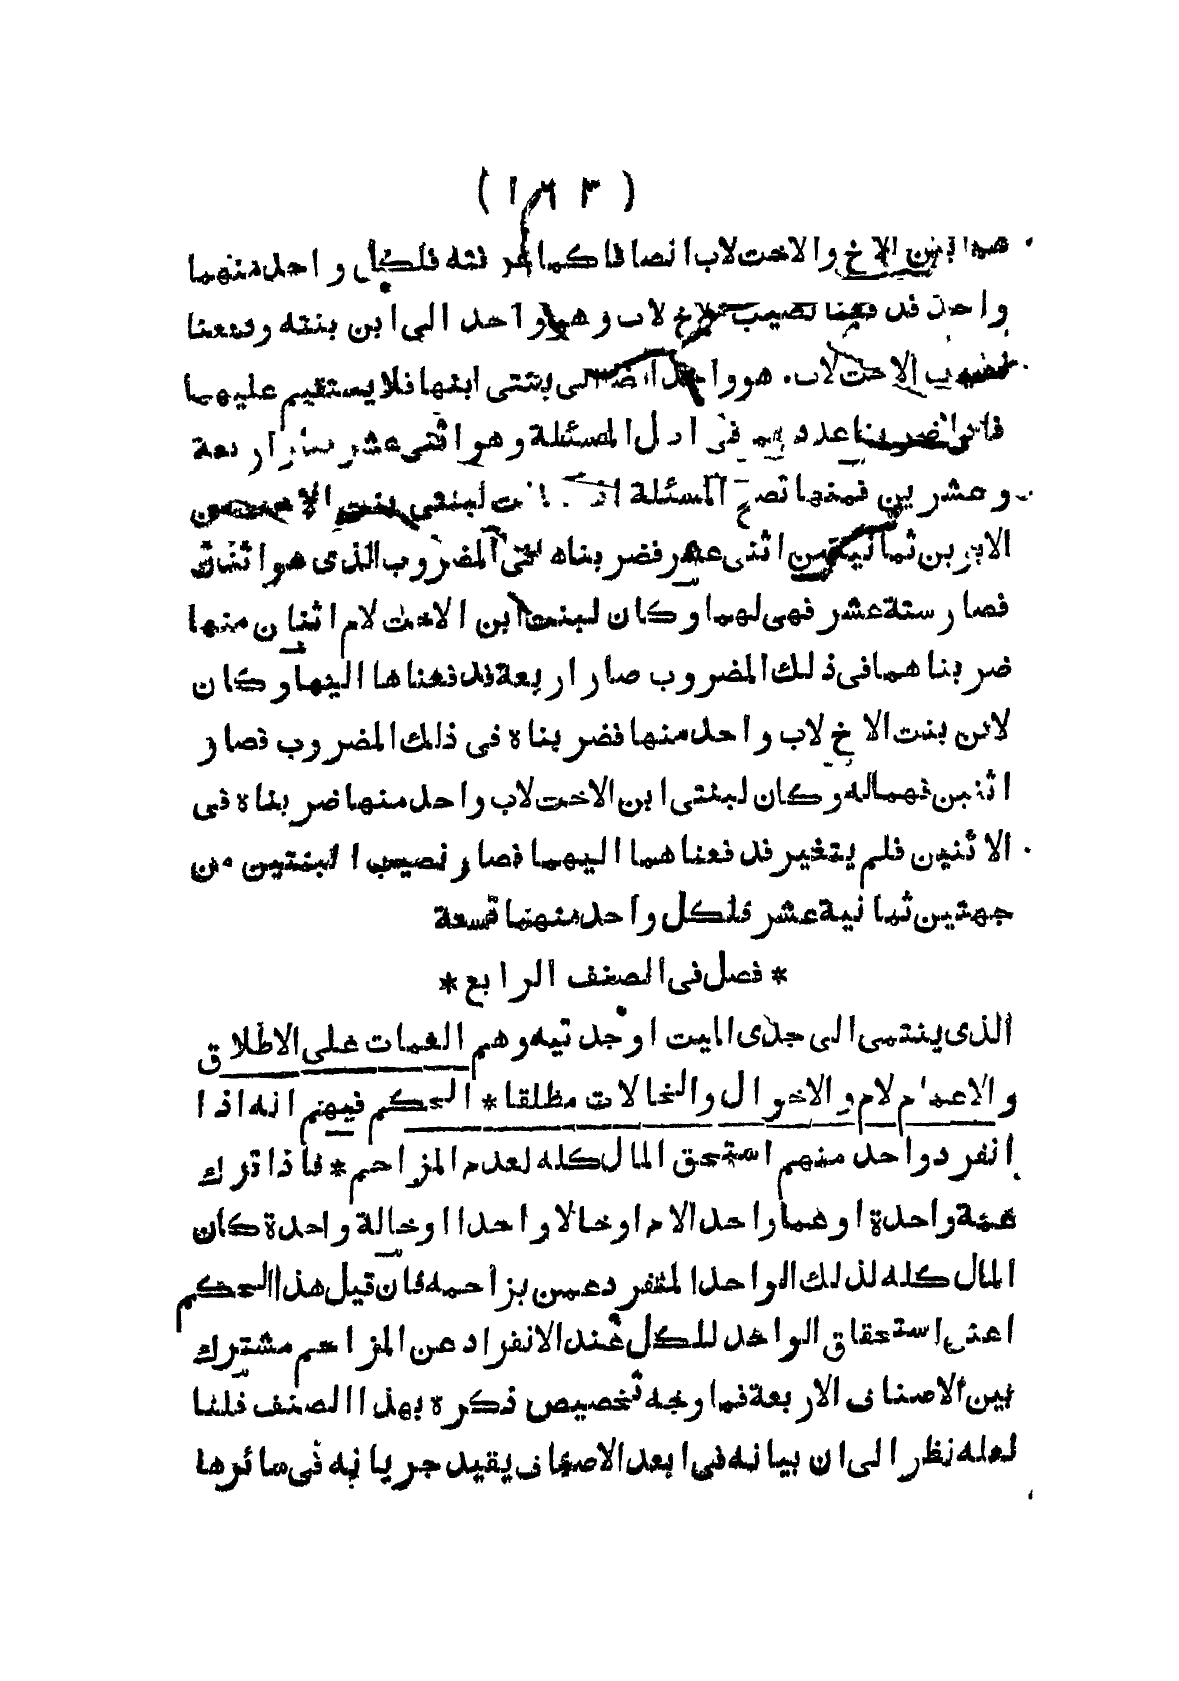 ( ١٦٣ )
الاخ والاخت لاب انصافا كما عرفته فلكل واحد منهما
واحد فدفعنا نصيب الاخ لاب وهو واحد الى ابن بنته ودفعنا
نصيب الاخت لاب هو واحد ايضا الى بنتى ابنها فلا يستقيم عليهما
فاثنان ضربنا عددهم فى اصل المسئلة وهو اثنى عشر صار اربعة
وعشرين فمنها تصح المسئلة اذ كانت لبنتى بنت الاخت من
الابوين ثمانية من اثنى عشر فضربناه فى المضروب الذى هو اثنان
فصار ستة عشر فهى لهما وكان لبنت ابن الاخت لام اثنان منها
ضربناهما فى ذلك المضروب صار اربعة فدفعناها اليها وكان
لابن بنت الاخ لاب واحد منها فضربناه فى ذلك المضروب فصار
اثنين فهما له وكان لبنتى ابن الاخت لاب واحد منها ضربناه فى
الاثنين فلم يتغير فدفعناهما اليهما فصار نصيب البنتين من
جهتين ثمانية عشر فلكل واحد منهما تسعة
* فصل فى الصنف الرابع *
الذى ينتمى الى جدى الميت او جدتيه وهم العمات على الاطلاق
والاعمام لام والاخوال والخالات مطلقا * الحكم فيهم انه اذا
انفرد واحد منهم استحق المال كله لعدم المزاحم * فاذا ترك
عمة واحدة او عما واحدا لام او خالا واحدا او خالة واحدة كان
المال كله لذلك الواحد المنفرد عمن يزاحمه فان قيل هذا الحكم
اعنى استحقاق الواحد للكل عند الانفراد عن المزاحم مشترك
بين الاصناف الاربعة فما وجه تخصيص ذكره بهذا الصنف قلنا
لعله نظر الى ان بيانه فى ابعد الاصناف يفيد جريانه فى سائرها